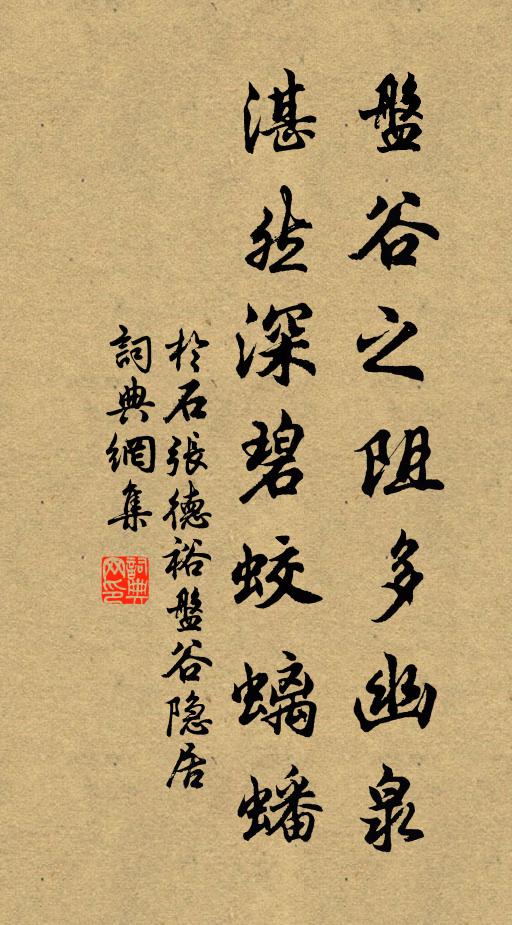 盤谷之阻多幽泉
湛然深碧蛟螭蟠
於石張德裕盤谷隐居
詞典網集
詞典网印